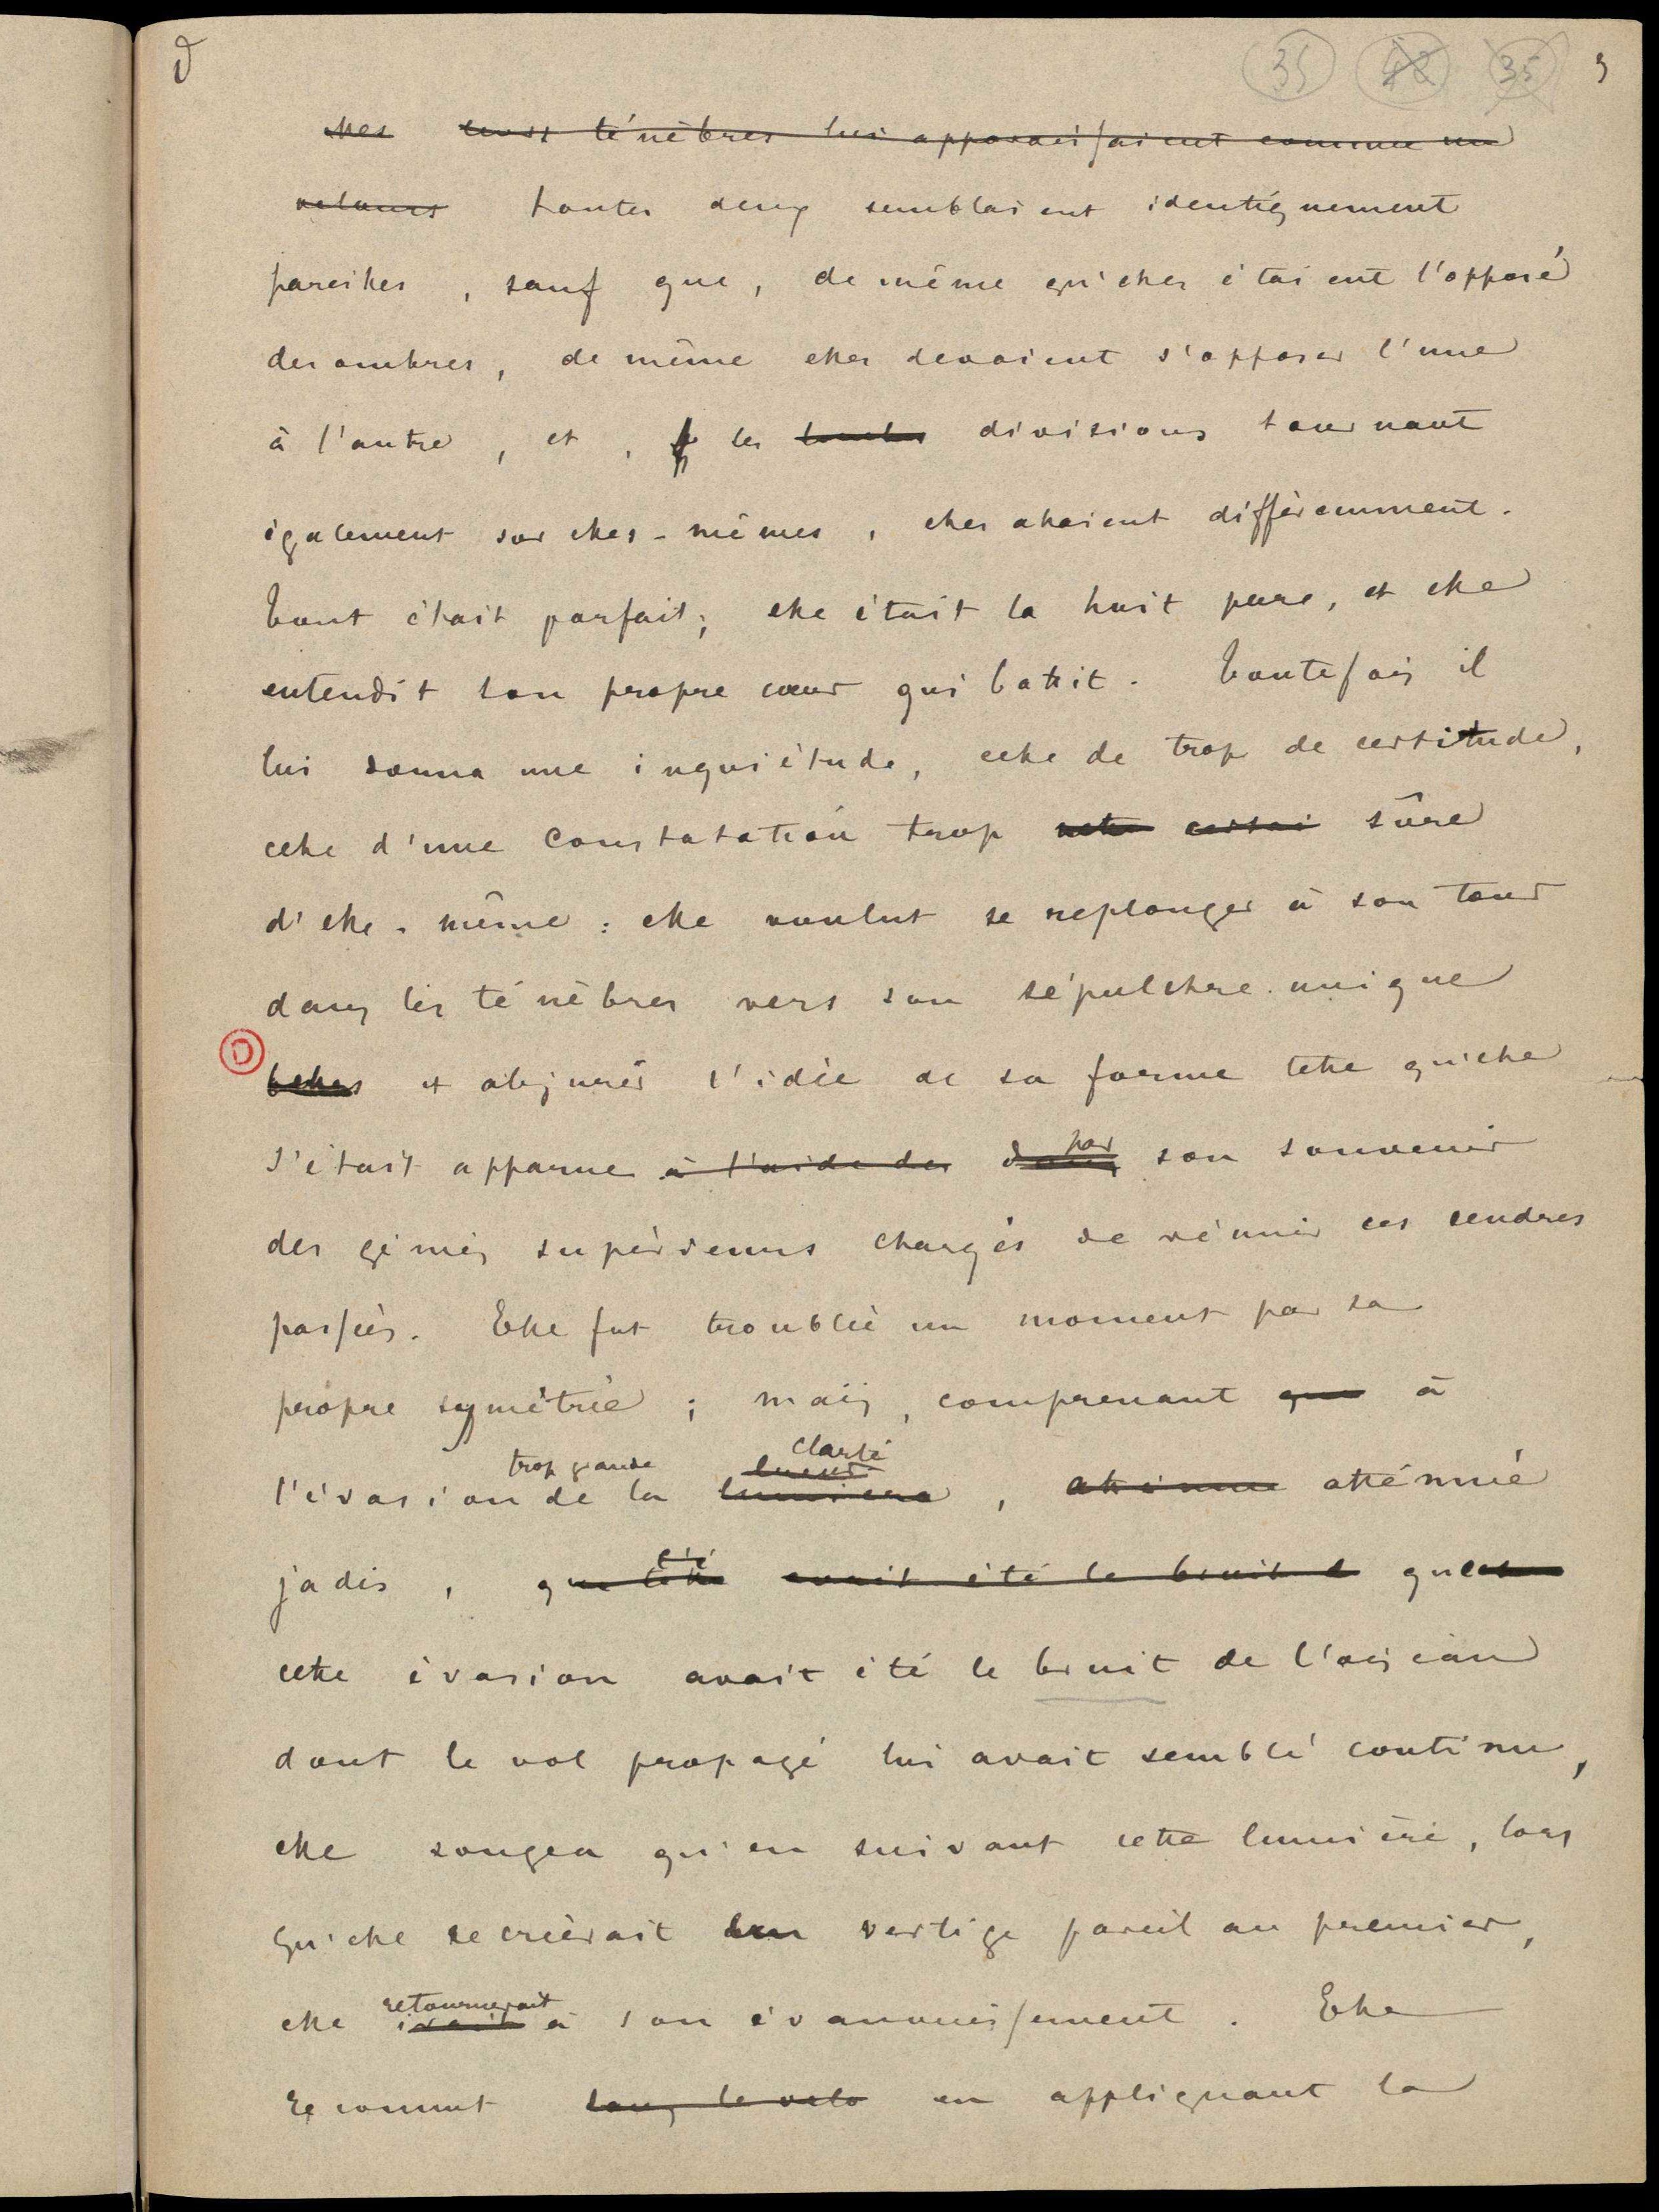 ∂ 35 42 35 9
elles leurs ténèbres lui apparaissaient comme un
velours toutes deux semblaient identiquement
pareilles, sauf que, de même qu'elles étaient l'opposé
des ombres, de même elles devaient s'opposer l'une
à l'autre, et, les divisions tournant
également sur elles-mêmes, elles allaient différemment.
Tout était parfait; elle était la Nuit pure, et elle
entendit son propre cœur qui battit. Toutefois il
lui donna une inquiétude, celle de trop de certitude,
celle d'une constatation trop nette certai sûre
d'elle-même: elle voulut se replonger à son tour
dans les ténèbres vers son sépulchre unique
et abjurer l'idée de sa forme telle qu'elle
s'était apparue à l'aide des dans par son souvenir
des génies supérieurs chargés de réunir ces cendres
passées. Elle fut troublée un moment par sa
propre symétrie; mais, comprenant que à
l'évasion trop grande de la lumière lueur clarté, atténué
jadis, que avait été le bruit d que
cette évasion avait été le bruit de l'oiseau
dont le vol propagé lui avait semblé continu,
elle songea qu'en suivant cette lumière, lors
qu'elle recréerait un vertige pareil au premier,
elle irait retournerait à son évanouissement. Elle
reconnut en appliquant la
D